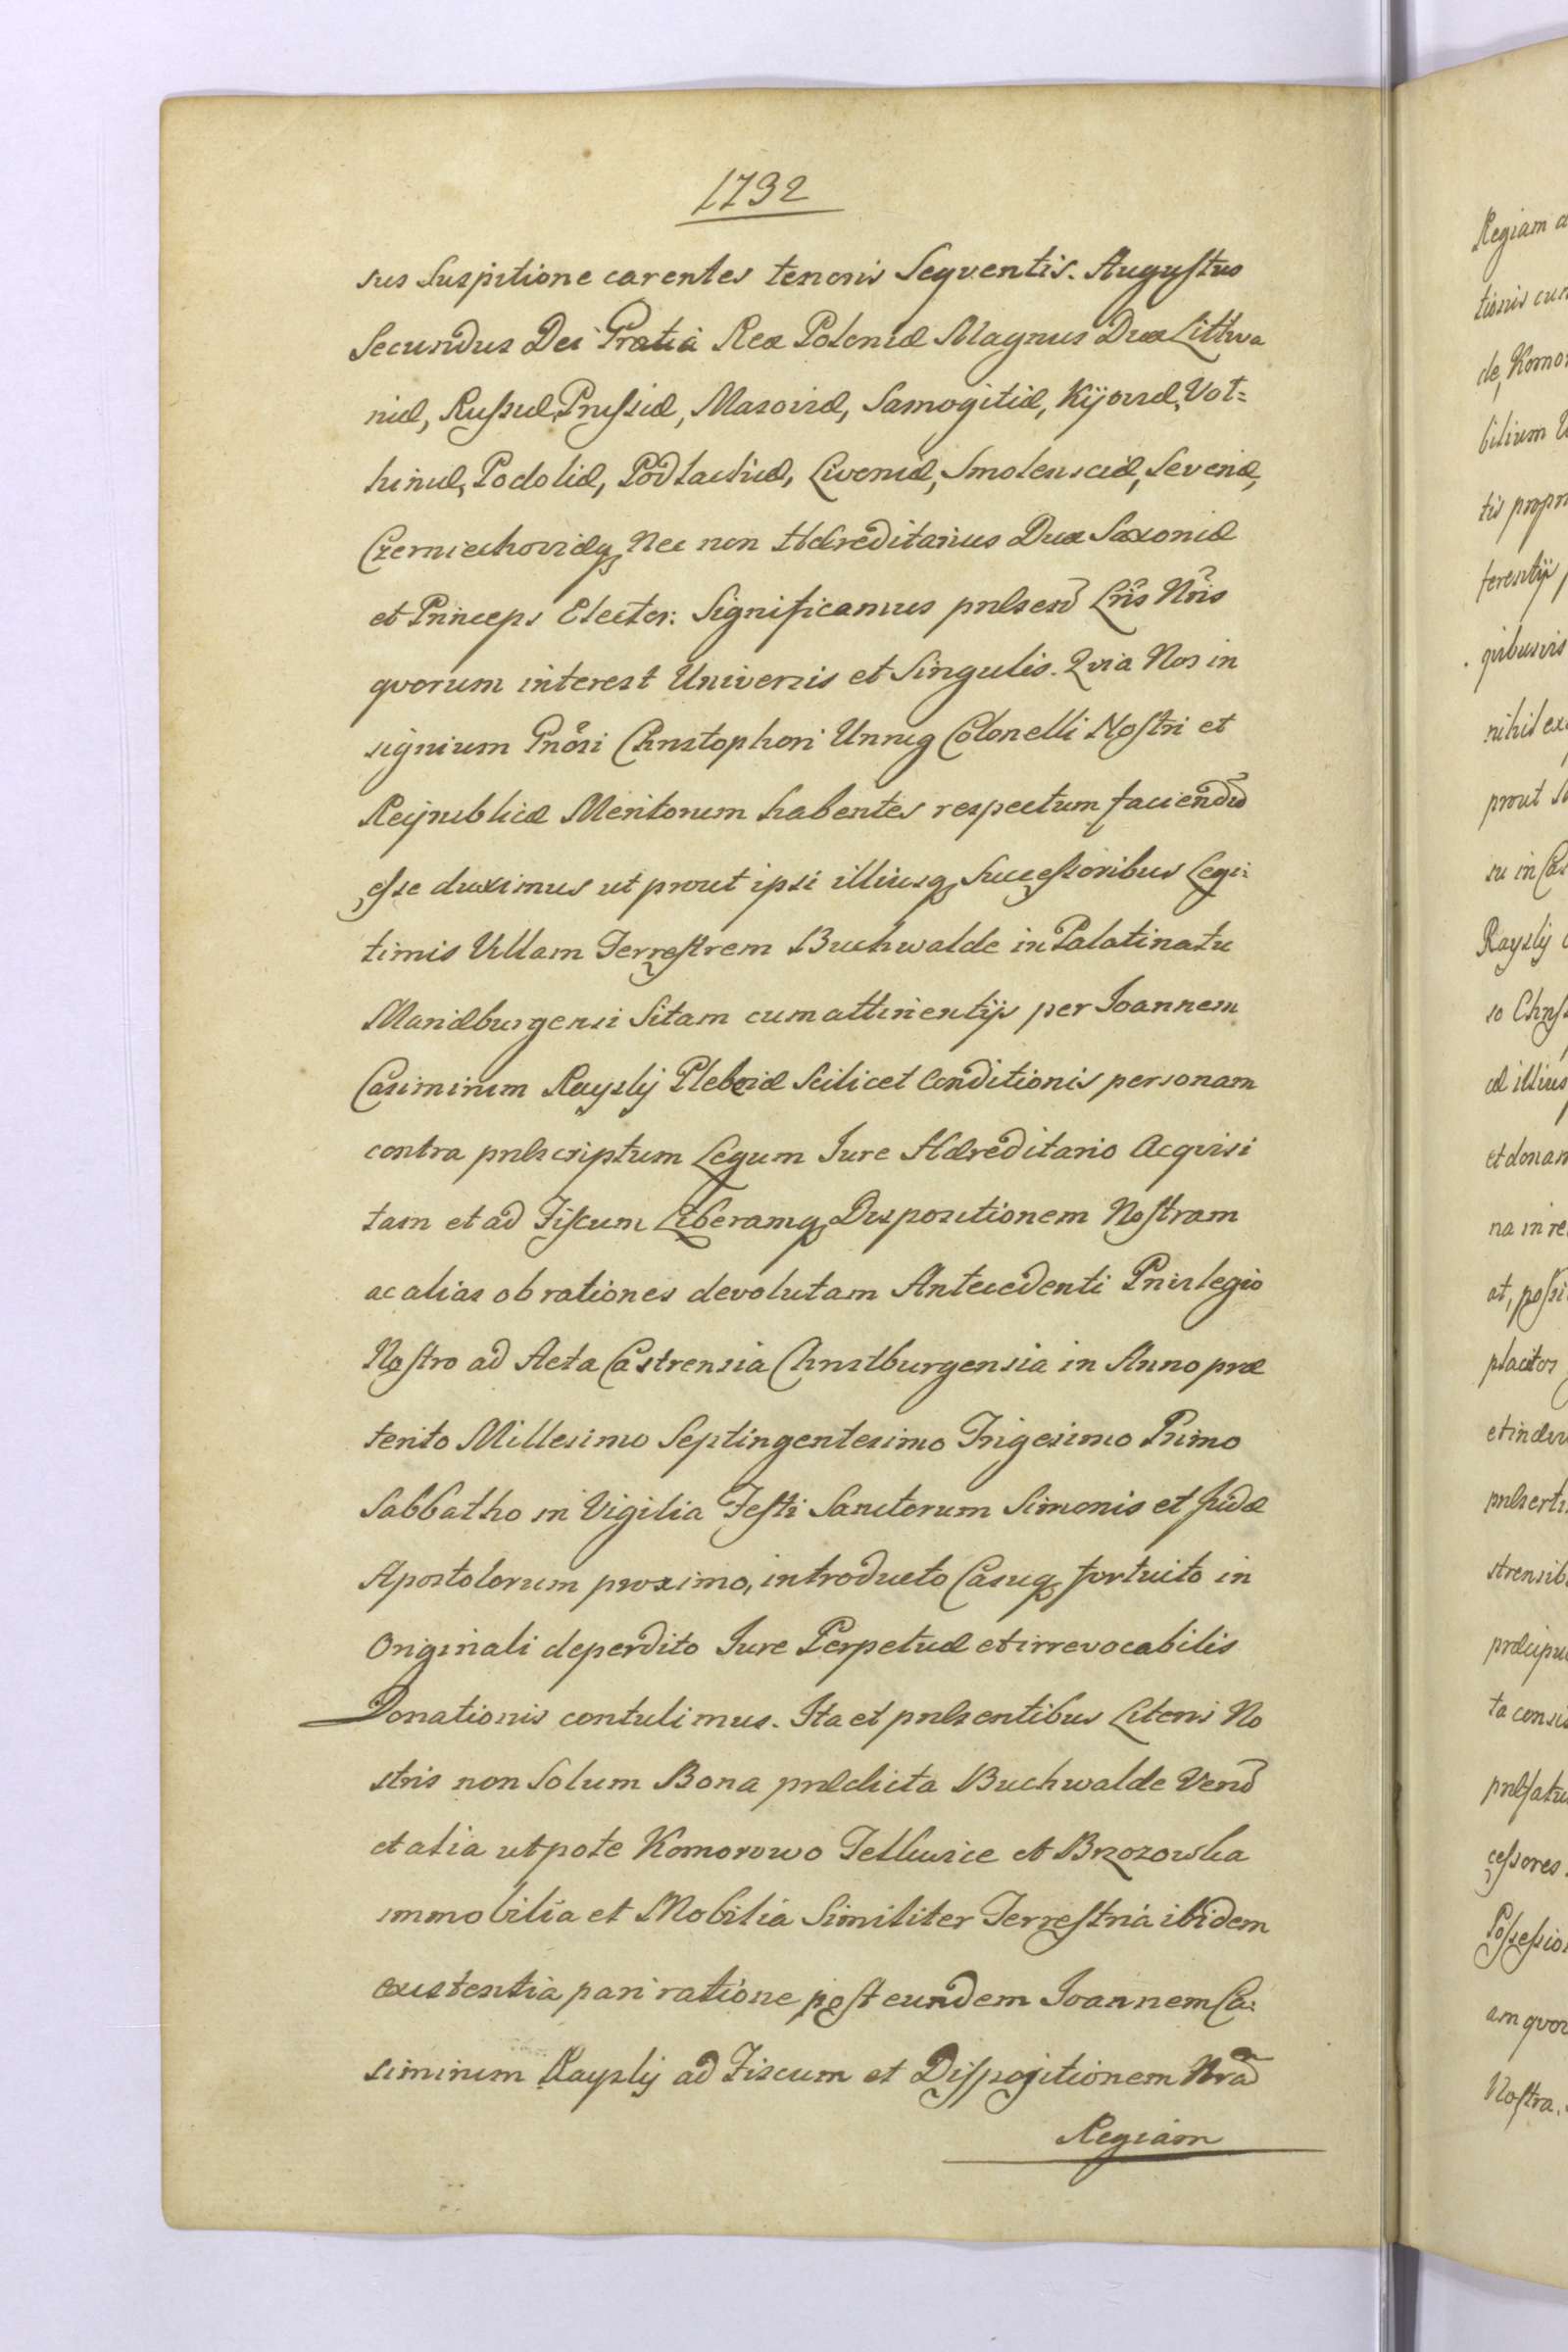 1732
sus Suspitione carentes tenoris Seqventis. Augustus
Secundus Dei Gratia Rex Poloniæ Magnus Dux Littwa
niæ, Russiæ, Prussiæ, Masoviæ, Samogitiæ, Kijoviæ, Vol=
hiniæ, Podoliæ, Podlachiæ, Livoniæ, Smolensciæ, Severiæ,
Czerniechoviæq, Nec non Hæreditarius Dux Saxoniæ
et Princeps Elector: Significamus præsend Lris Nris
qvorum interest Universis et Singulis. Qvia Nos in
signium Gnosi Christophori Unrug Colonelli Nostri et
Reipublicæ Meritorum habentes respectum faciendu
esse duximus ut prout ipsi illiusq, Successoribus Legi:
timis Villam Terrestrem Buchwalde in Palatinatu
Mariæburgensi Sitam cum attinentijs per Joannem
Casimirum Rayslij Plebeiæ Scilicet Conditionis personam
contra præscriptum Legum Jure Hæreditario Acqvisi
tam et ad Fiscum Liberamq, Dispositionem Nostram
ac alias ob rationes devolutam Antecedenti Privilegio
Nostro ad Acta Castrensia Christburgensia in Anno præ
terito Millesimo Septingentesimo Trigesimo Primo
Sabbatho in Vigilia Festi Sanctorum Simonis et Judæ
Apostolorum proximo, introducto Casuq, fortuito in
Originali deperdito Jure Perpetuæ et irrevocabilis
Donationis contulimus. Ita et præsentibus Literis No
stris non Solum Bona prædicta Buchwalde Verũ
et alia utpote Komorowo Telkwice et Brozowka
immobilia et Mobilia Similiter Terrestria ibidem
existentia pari ratione post eundem Joannem Ca:
simirum Rayslij ad Fiscum et Dispositionem Nram
Regiam
Regiam
tionis cum
de, Komor
bilium
tis propr
ferentij
qvibusvis
nihil ex
prout
su in Cas
Rayslij
so Christ
æ illius
et donam
na in re
at, possi
placitos
et indu
præserti
strensib
præcipu
ta consi
præfatu
cessores
Possessio
am qvor
Nostra.